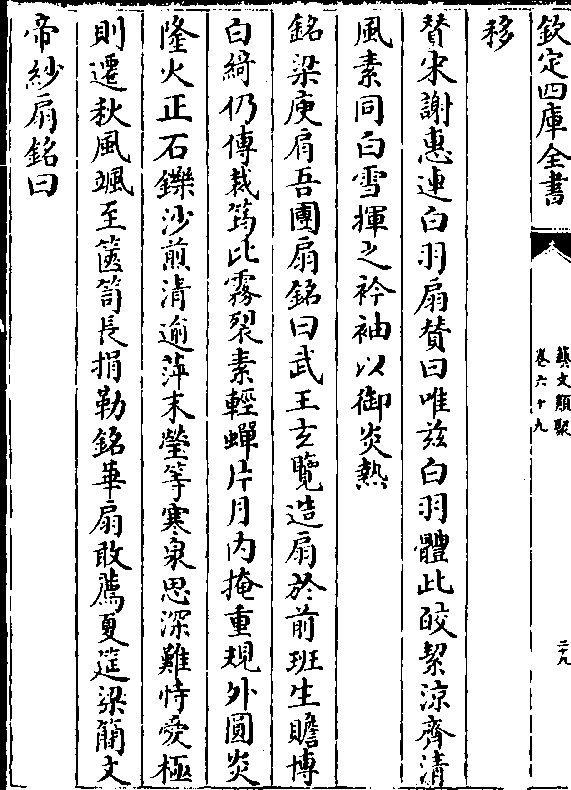 欽定四庫全書
藝文類聚
卷六十九
二十九
移
賛宋謝惠連白羽扇賛曰唯兹白羽體此皎絜涼齊清
風素同白雪揮之衿袖以御炎熱
銘梁庾肩吾團扇銘曰武王玄覽造扇於前班生贍博
白綺仍傳裁筠比霧裂素輕蟬片月内掩重規外圓炎
隆火正石鑠沙煎清逾萍末瑩等寒泉思深難恃愛極
則遷秋風颯至篋笥長捐勒銘華扇敢薦夏筵梁簡文
帝紗扇銘曰